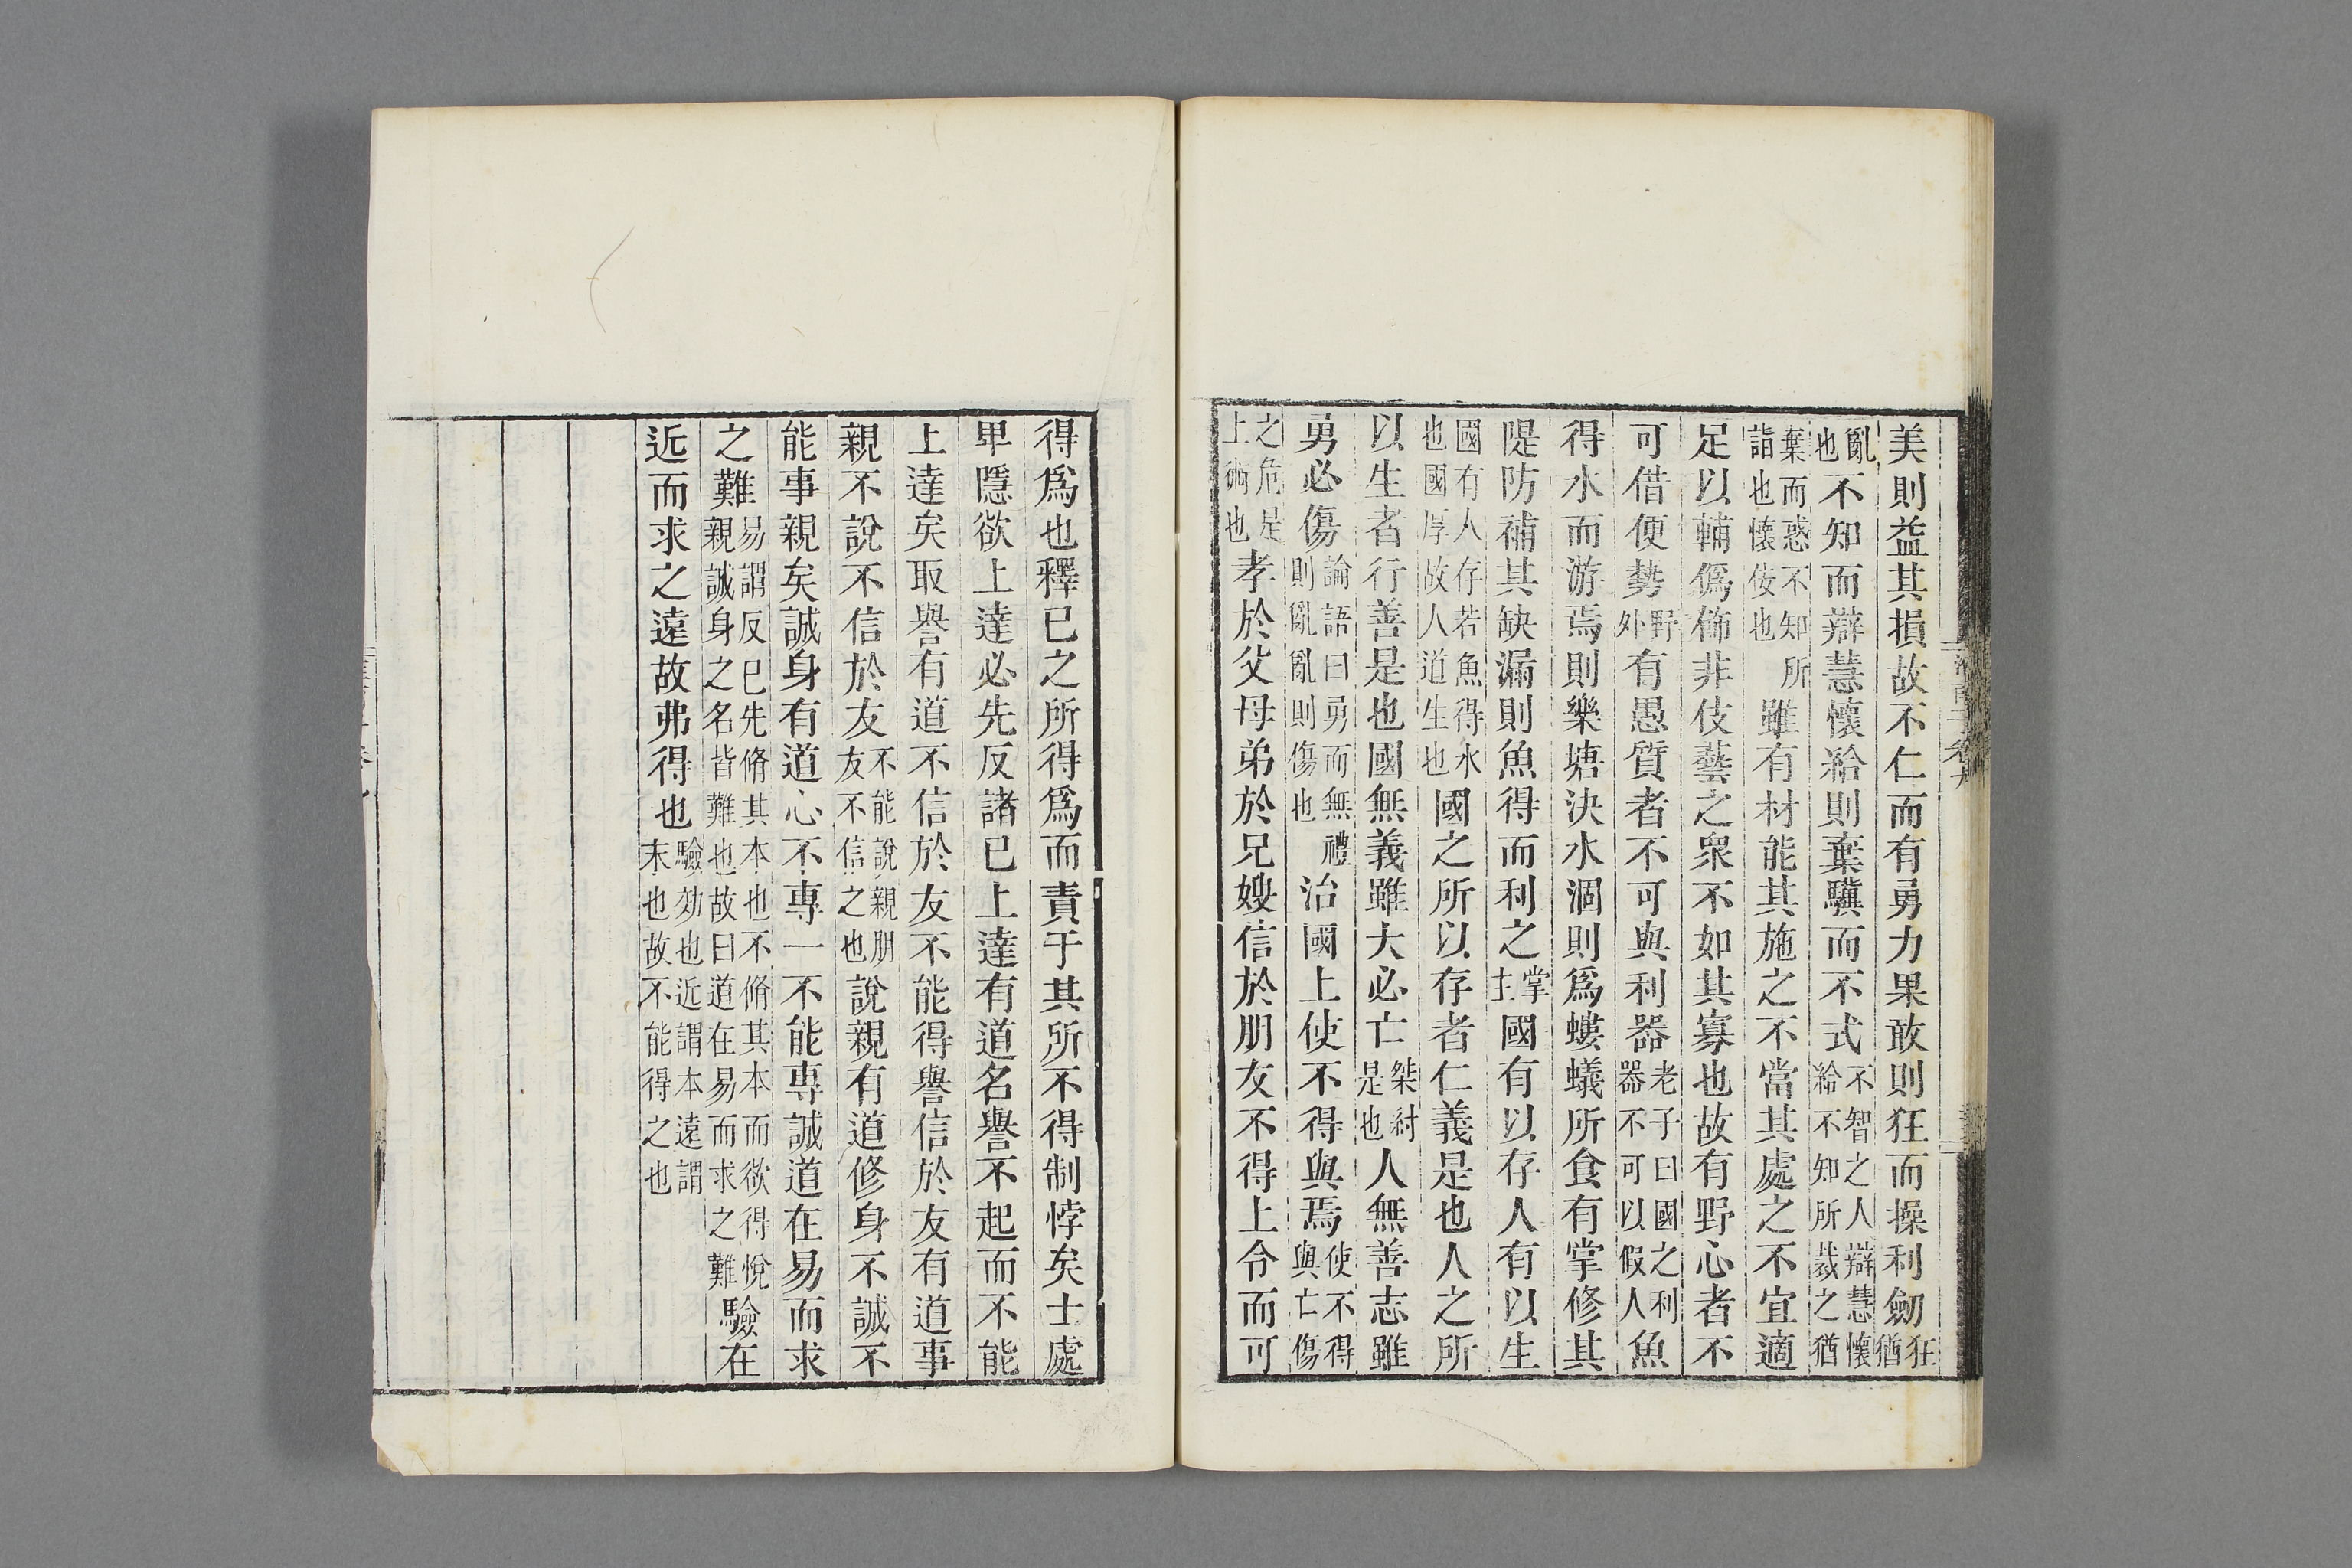 美則益其損故不仁而有勇力果敢則狂而操利劒狂猶
亂也不知而辯慧懷給則棄驥而不式不智之人辯慧懷給不知所裁之猶
棄而惑不知所詣也懷佞也雖有材能其施之不當其處之不宜適
足以輔僞飾非伎藝之衆不如其寡也故有野心者不
可借便勢野外有愚質者不可與利器老子曰國之利器不可以假人魚
得水而游焉則樂塘決水涸則爲螻蟻所食有掌修其
隄防補其缺漏則魚得而利之掌主國有以存人有以生
國有人存若魚得水也國厚故人道生也國之所以存者仁義是也人之所
以生者行善是也國無義雖大必亡桀紂是也人無善志雖
勇必傷論語曰勇而無禮則亂亂則傷也治國上使不得與焉使不得與亡傷
之危是上術也孝於父母弟於兄嫂信於朋友不得上令而可
得爲也釋已之所得爲而責于其所不得制悖矣士處
卑隱欲上達必先反諸已上達有道名譽不起而不能
上達矣取譽有道不信於友不能得譽信於友有道事
親不說不信於友不能說親朋友不信之也說親有道修身不誠不
能事親矣誠身有道心不專一不能專誠道在易而求
之難易謂反已先脩其本也不脩其本而欲得悅親誠身之名皆難也故曰道在易而求之難驗在
近而求之遠故弗得也驗効也近謂本遠謂末也故不能得之也